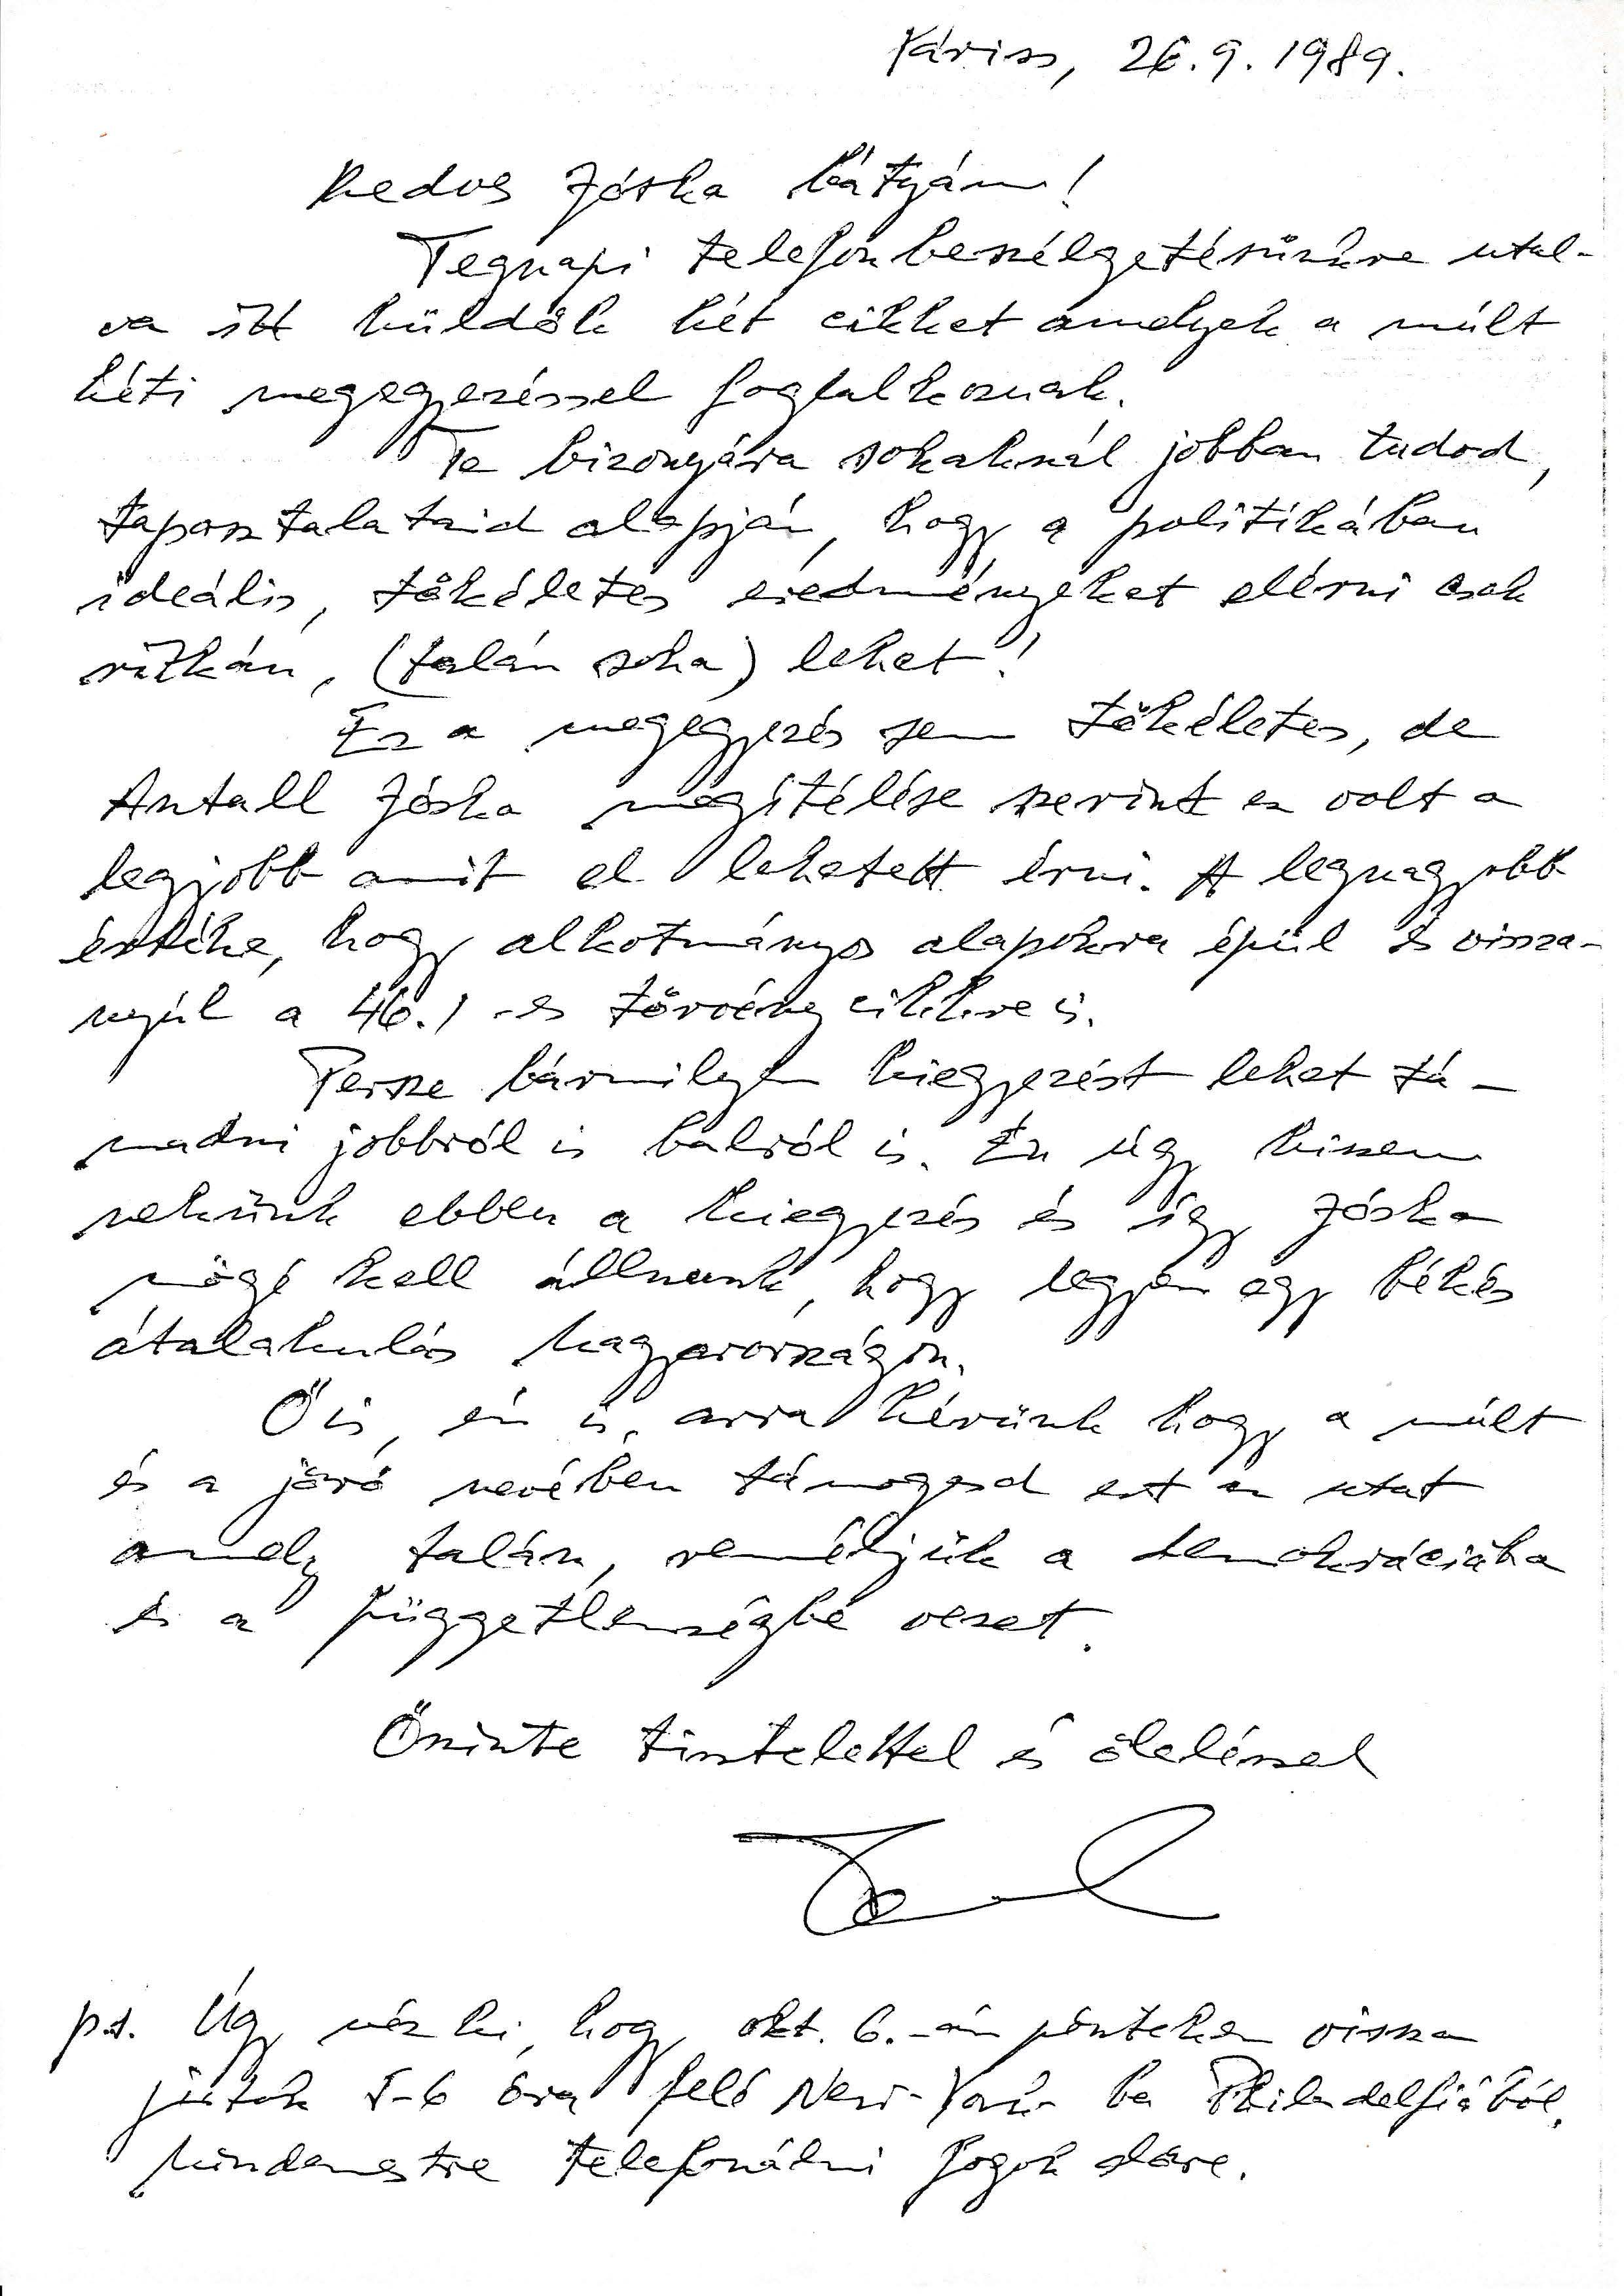 Páriss, 26.9.1989.
Kedves Jóska bátyám!
Tegnapi telefonbeszélgetésünkre utal-
va itt küldök két cikket amelyek a múlt
héti megegyezéssel foglalkoznak.
Te bizonyára sokaknál jobban tudod,
tapasztalataid alapján, hogy a politikában
ideális, tökéletes eredményeket elérni csak
ritkán, (talán soha) lehet!
Ez a megegyezés sem tökéletes, de
Antall Jóska megítélése szerint ez volt a
legjobb amit el lehetett érni. A legnagyobb
értéke, hogy alkotmányos alapokra épül és vissza-
nyúl a 46.1-es törvénycikkre is.
Persze bármilyen kiegyezést lehet tá-
madni jobbról is balról is. Én úgy hiszem
nekünk ebben a kiegyezés és így Jóska
mögé kell állnunk, hogy legyen egy békés
átalakulás Magyarországon.
Ő is, én is, arra kérünk hogy a múlt
és a jövő nevében támogasd ezt az utat
amely talán, reméljük a demokráciába
és a függetlenségbe vezet.
Őszinte tisztelettel és öleléssel
ps. Úgy néz ki, hogy okt. 6.-án pénteken vissza
jutok 5-6 óra felé New-York-ba Philadelfiából,
mindenestre telefonálni fogok előre.